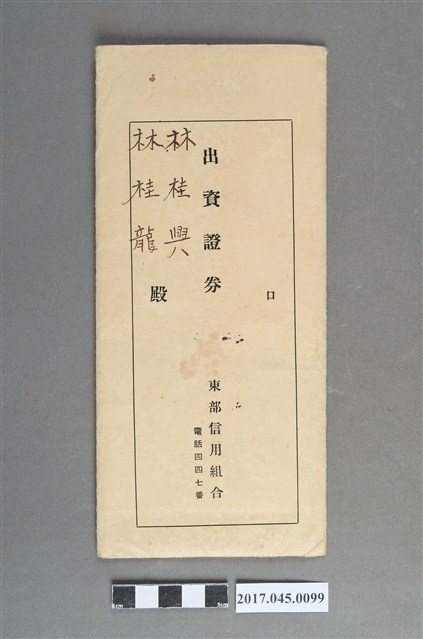 口
出資證券
林桂興
林桂龍
殿
東部信用組合
電話四四七番
2017.045.0099
0cm
5cm